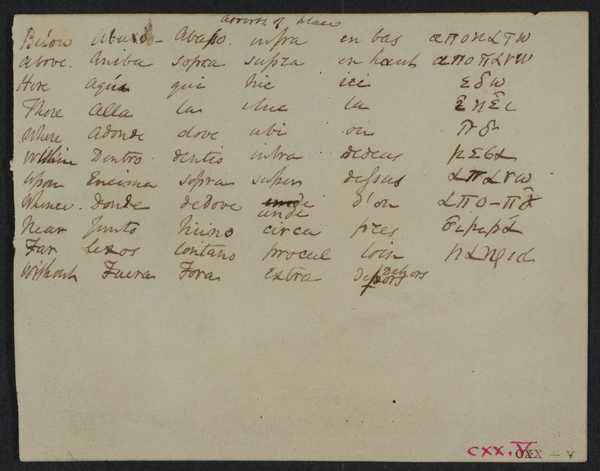 adverbs of place
Below abaxo- Abaßo. infra en bas αποκατω
above. Ariba sopra supra en haut αποπανω
Here aqúi qui hic ici εδω
There alla la illuc la εκει
Where adonde dove ubi ou που
Within Dentro dentro intra dedans μεσα
upon Encima sopra super dessus απανω
Whence. donde dedove unde d'ou απο-που
unde
Near Junto circa pres
Far lexos lontano procul loin
Without Fuera Fora extra dehors
CXX.V CXX - V